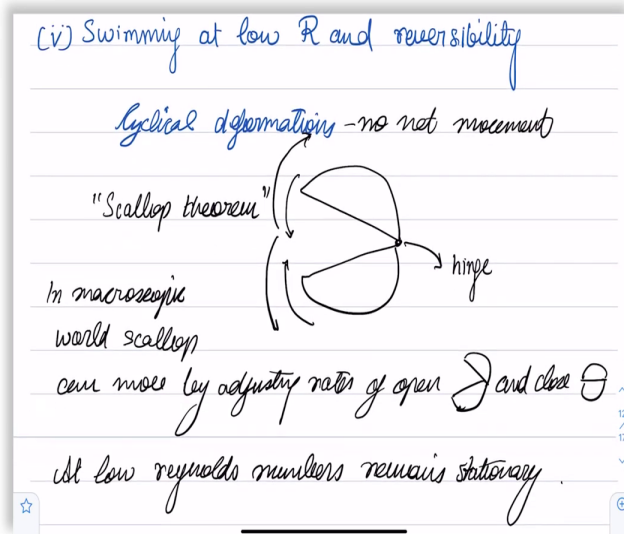 (v) Swimmig at low R and reversibility
Cyclical deformations - no net movement
"Scallop theorem"
hinge
In macroscopic
world scallop
can move by adjusting rates of open and close
At low reynolds numbers remains stationary.